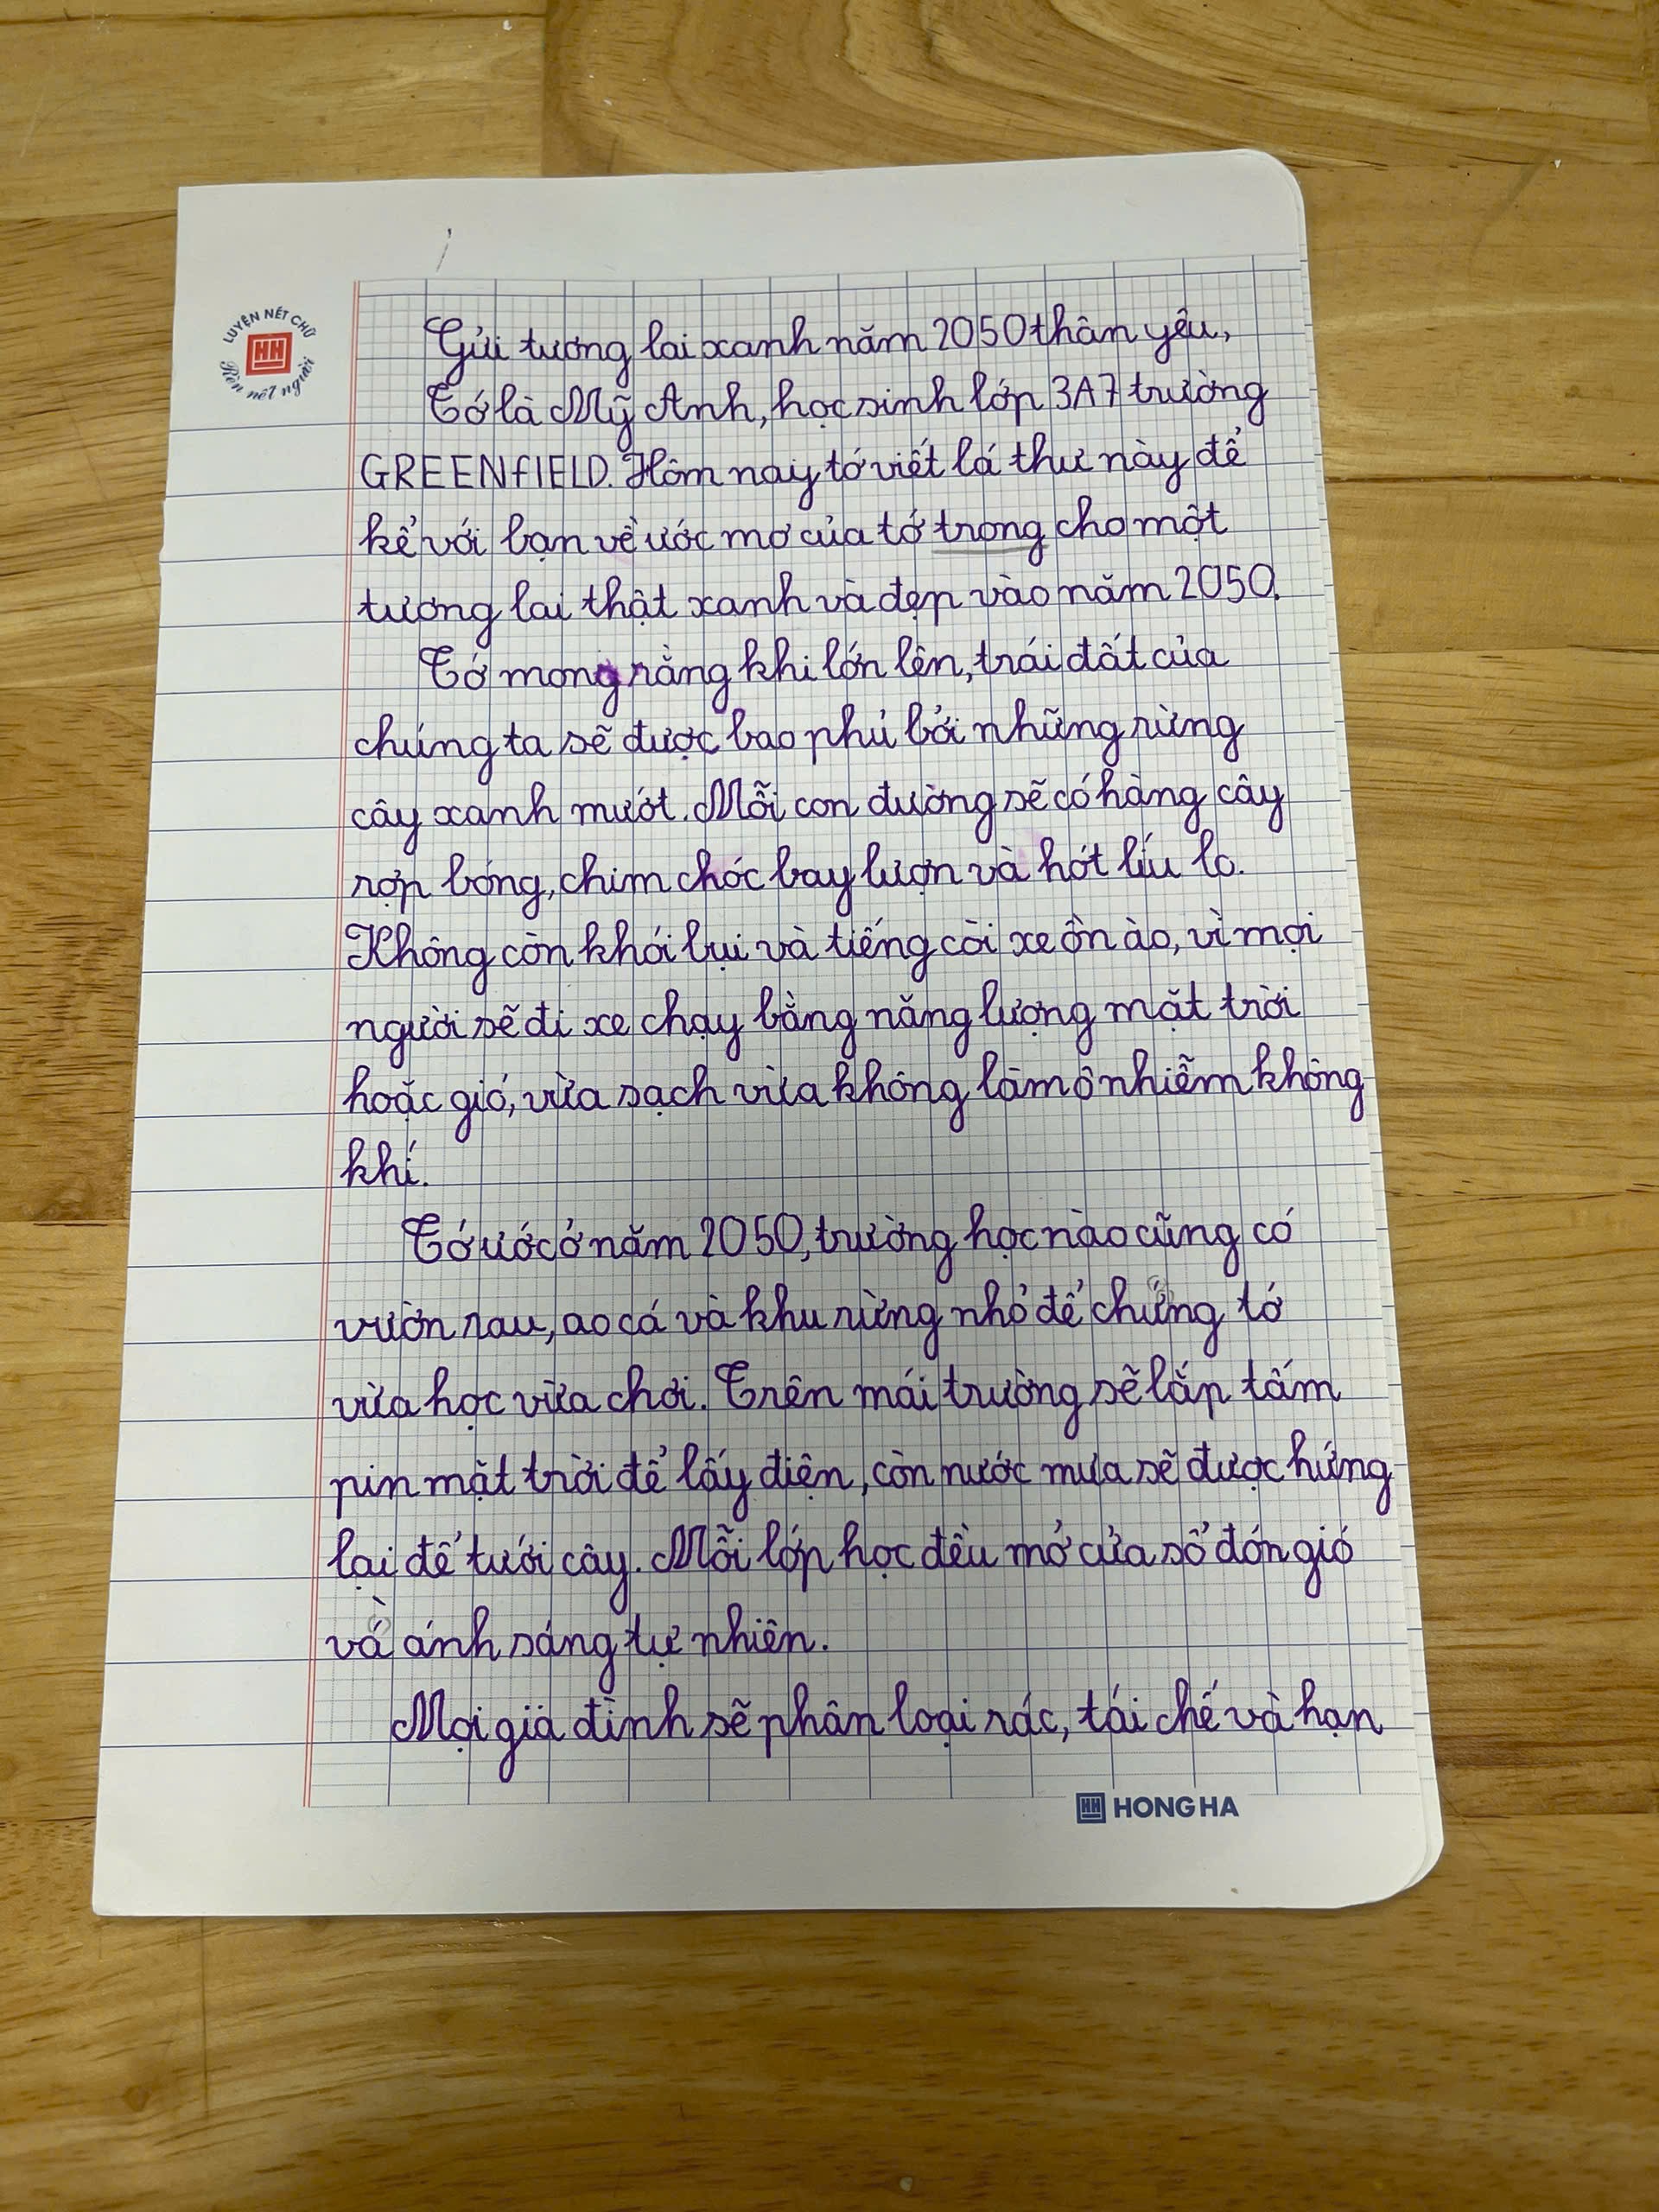 LUYỆN NÉT CHỮ
HH
Rèn nết người
Gửi tương lai xanh năm 2050 thân yêu,
Tớ là Mỹ Anh, học sinh lớp 3A7 trường
GREENfIELD. Hôm nay tớ viết lá thư này để
kể với bạn về ước mơ của tớ trong cho một
tương lai thật xanh và đẹp vào năm 2050.
Tớ mong rằng khi lớn lên, trái đất của
chúng ta sẽ được bao phủ bởi những rừng
cây xanh mướt. Mỗi con đường sẽ có hàng cây
rợp bóng, chim chóc bay lượn và hót líu lo.
Không còn khói bụi và tiếng còi xe ồn ào, vì mọi
người sẽ đi xe chạy bằng năng lượng mặt trời
hoặc gió, vừa sạch vừa không làm ô nhiễm không
khí.
Tớ ước ở năm 2050, trường học nào cũng có
vườn rau, ao cá và khu rừng nhỏ để chúng tớ
vừa học vừa chơi. Trên mái trường sẽ lắp tấm
pin mặt trời để lấy điện, còn nước mưa sẽ được hứng
lại để tưới cây. Mỗi lớp học đều mở cửa sổ đón gió
và ánh sáng tự nhiên.
Mọi gia đình sẽ phân loại rác, tái chế và hạn
HH HONG HA